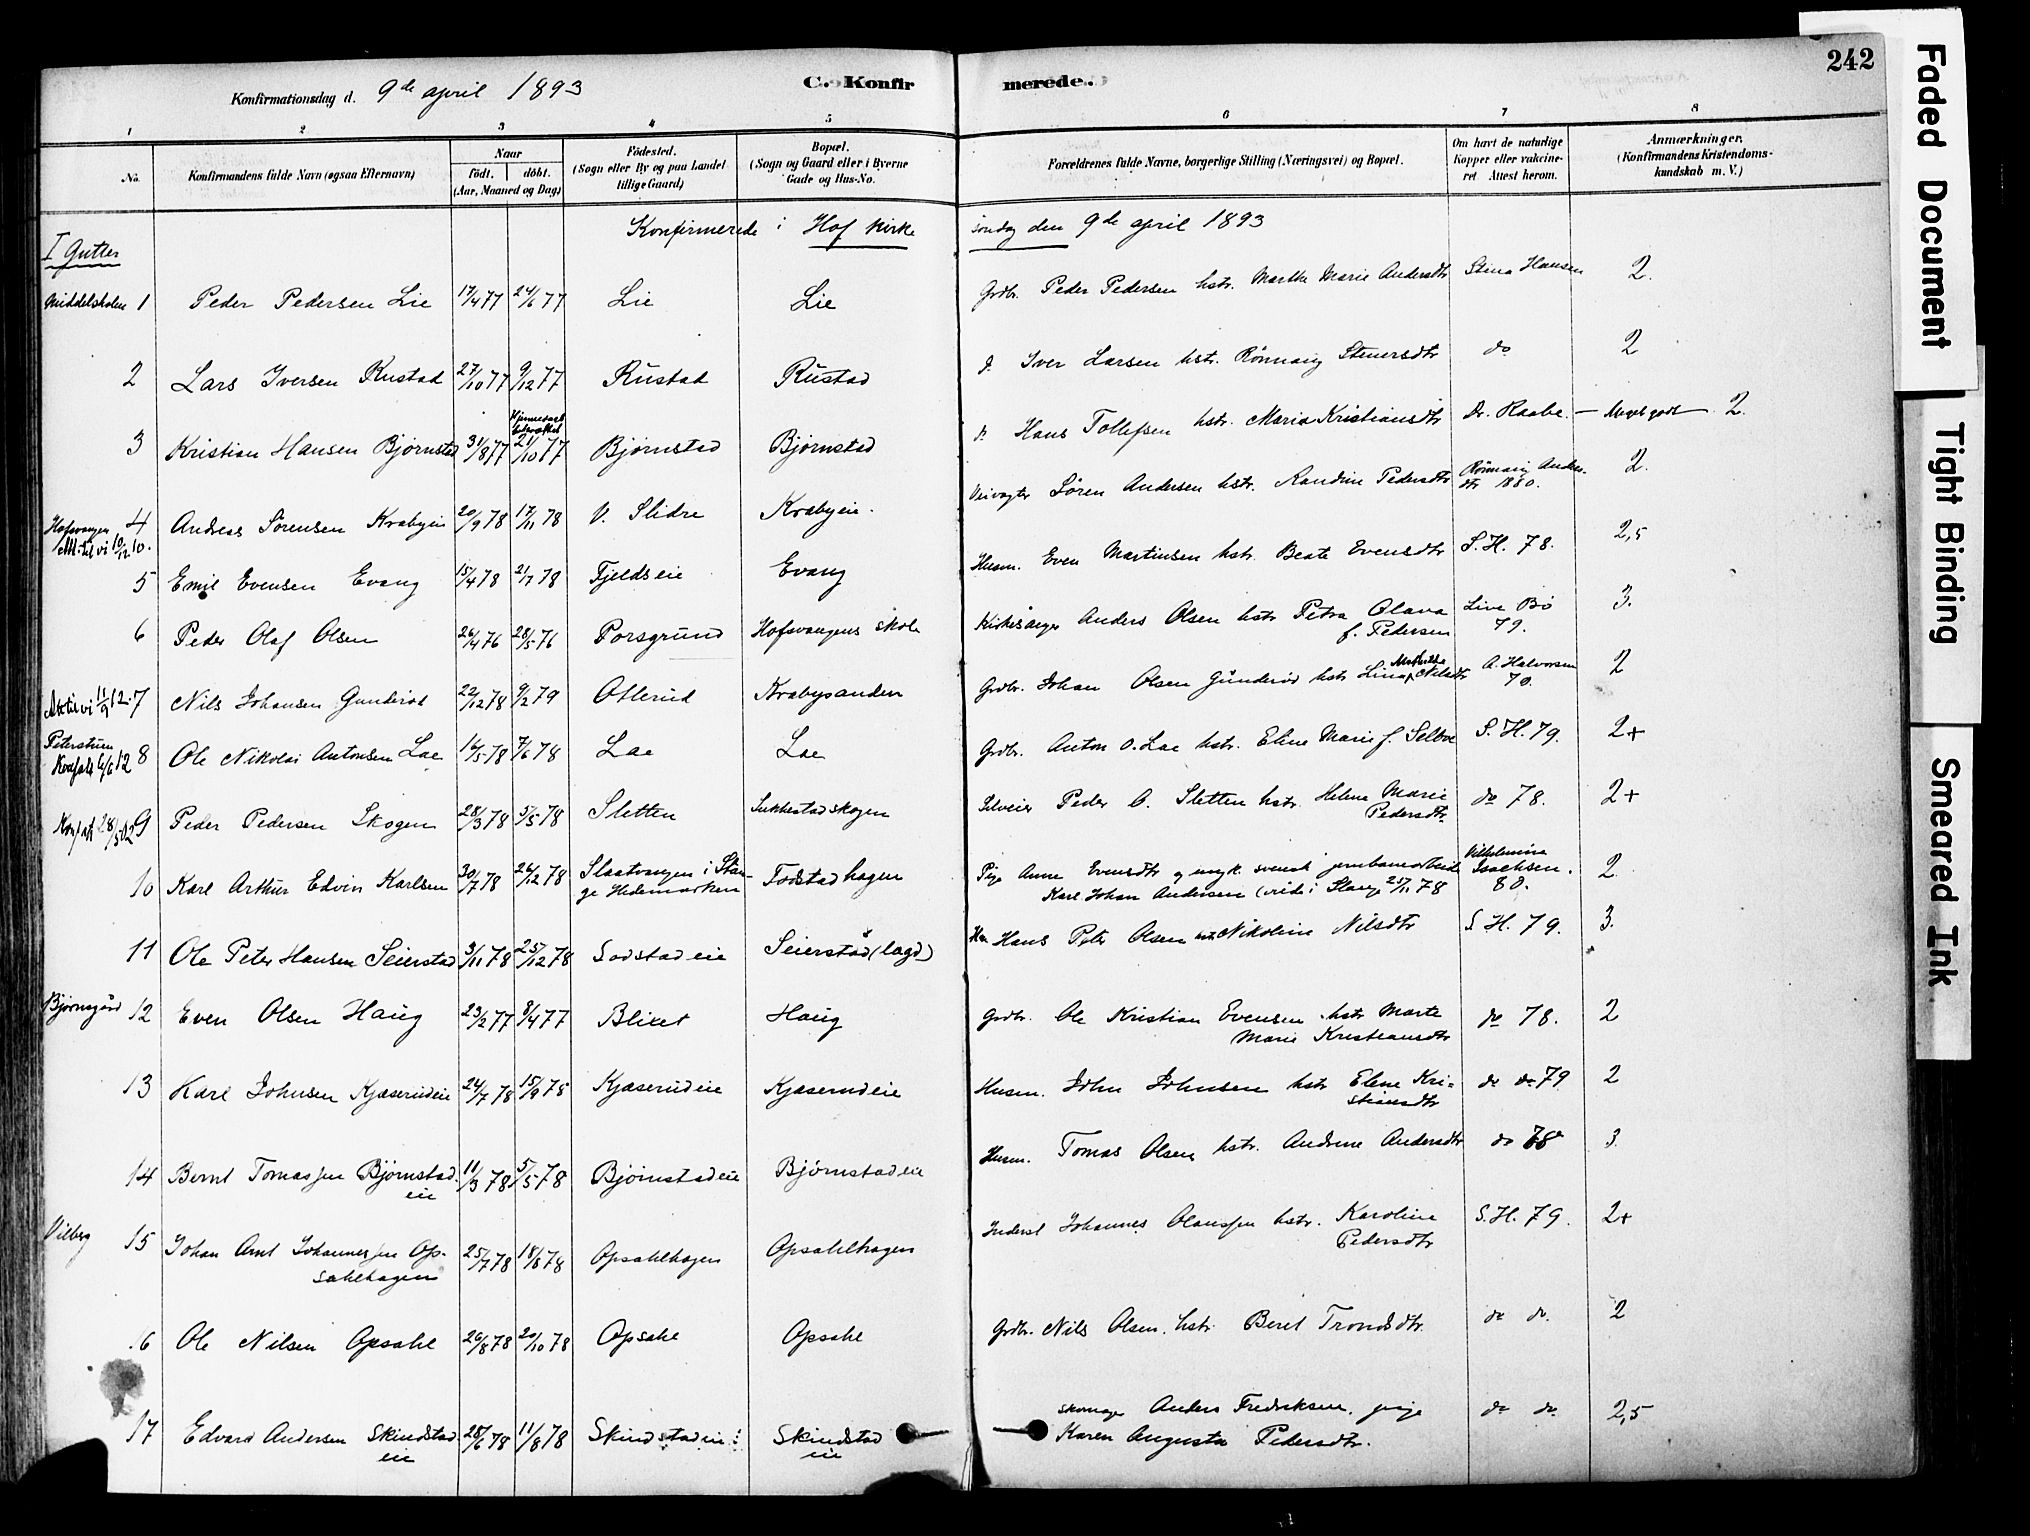 242
Konfirmationsdag d. 9de april 1893
C. Konfirmerede.
1 2 3 4 5 6 7 8
No.
Konfirmandens fulde Navn (ogsaa Efternavn)
Naar
födt. döbt.
(Aar, Maaned og Dag)
Födested.
(Sogn eller By og paa Landet
tillige Gaard)
Bopæl.
(Sogn og Gaard eller i Byerne
Gade og Hus-No.
Forældrenes fulde Navne, borgerlige Stilling (Næringsvei) og Bopæl.
Om havt de naturlige
Kopper eller vakcine-
ret Attest herom.
Anmærkninger.
(Konfirmandens Kristendoms-
kundskab m. V.)
Konfirmerede i Hof kirke søndag den 9de april 1893
I Gutter
Middelskolen 1 Peder Pedersen Lie 17/4 77 24/6 77 Lie Lie Grdbr. Peder Pedersen hstr. Marthe Marie Andersdtr Stina Hansen 2.
2 Lars Iversen Rustad 27/10 77 9/12 77 Rustad Rustad d. Iver Larsen hstr. Rönnaug Steuersdtr do 2
Hjemmedøbt
3 Kristian Hansen Bjørnstad 31/8 77 21/10 77 Bjørnstad Bjørnstad d. Hans Tollefsen hstr. Maria Kristiansdtr Dr. Raabe. — Meget godt 2.
Hofsvangen 4 Andreas Sörensen Krabyeie 20/9 78 17/11 78 V. Slidre Krabyeie. Veivogter Sören Andersen hstr. Randine Pedersdtr Rönnaug Anders-
dtr 1880. 2.
5 Emil Evensen Evang 15/4 78 21/7 78 Fjeldseie Evang Husm. Even Martinsen hstr. Beate Evensdtr S.H. 78. 2,5
6 Peder Olaf Olsen 26/4 76 28/5 76 Porsgrund Hofsvangens skole Kirkesanger Anders Olsen hstr Petra Olava
f. Pedersen Live Bö
79. 3.
7 Nils Johansen Gunderød 22/12 78 9/2 79 Otterud Krabysanden Grdbr. Johan Olsen Günderöd hstr Lina Mathilde Nilsdtr A. Halvorsen
70. 2
8 Ole Nikolai Antonsen Lae 16/5 78 7/6 78 Lae Lae Grdbr. Anton O. Lae hstr. Eline Marie f. Selboe S.H. 79. 2+
9 Peder Pedersen Skogen 28/3 78 5/5 78 Sletten Sukkestadskogen Selveier Peder C. Sletten hstr. Helene Marie
Pedersdtr. do 78. 2+
10 Karl Arthur Edvin Karlsen 30/7 78 26/12 78 Slaatvangen i Stan-
ge Hedemarken Todstadhagen Pige Anne Evensdtr og ungk. svensk jernbanearbeider
Karl Johan Andersen (viede i Stange 25/11 78 Vilhelmine
Isachsen.
80. 2
11 Ole Peter Hansen Seierstad 3/11 78 25/12 78 Sodstadeie Seierstad (lagd) Hans Peter Olsen hstr Nikoline Nilsdtr S.H. 79. 3.
Bjørnsgård 12 Even Olsen Haug 23/2 77 8/4 77 Bliket Haug Grdbr. Ole Kristian Evensen hstr Marte
Marie Kristiansdtr do 78. 2
13 Karl Johnsen Kjæserudeie 24/7 78 15/9 78 Kjæserudeie Kjæserudeie Husm. John Johnsen hstr Elene Kri-
stiansdtr do do 79 2
14 Bernt Tomassen Bjørnstad-
eie 11/3 78 5/5 78 Bjørnstadeie Bjørnstadeie Husm. Tomas Olsen hstr. Andrine Andersdtr do 78 3
Vilberg 15 Johan Arnt Johannessen Op-
sahlhagen 25/7 78 18/8 78 Opsahlhagen Opsahlhagen Inderst Johannes Olaussen hstr. Karoline
Pedersdtr S.H. 79. 2+
16 Ole Nilsen Opsahl 26/8 78 20/10 78 Opsahl Opsahl Grdbr. Nils Olsen. hstr. Beret Trondsdtr. do do. 2
17 Edvard Andersen Skindstad-
eie 28/6 78 11/8 78 Skindstadeie Skindstad
eie skomager Anders Fredriksen. pige
Karen Augusta Pedersdtr. do do 2,5
Faded Document
Tight Binding
Smeared Ink